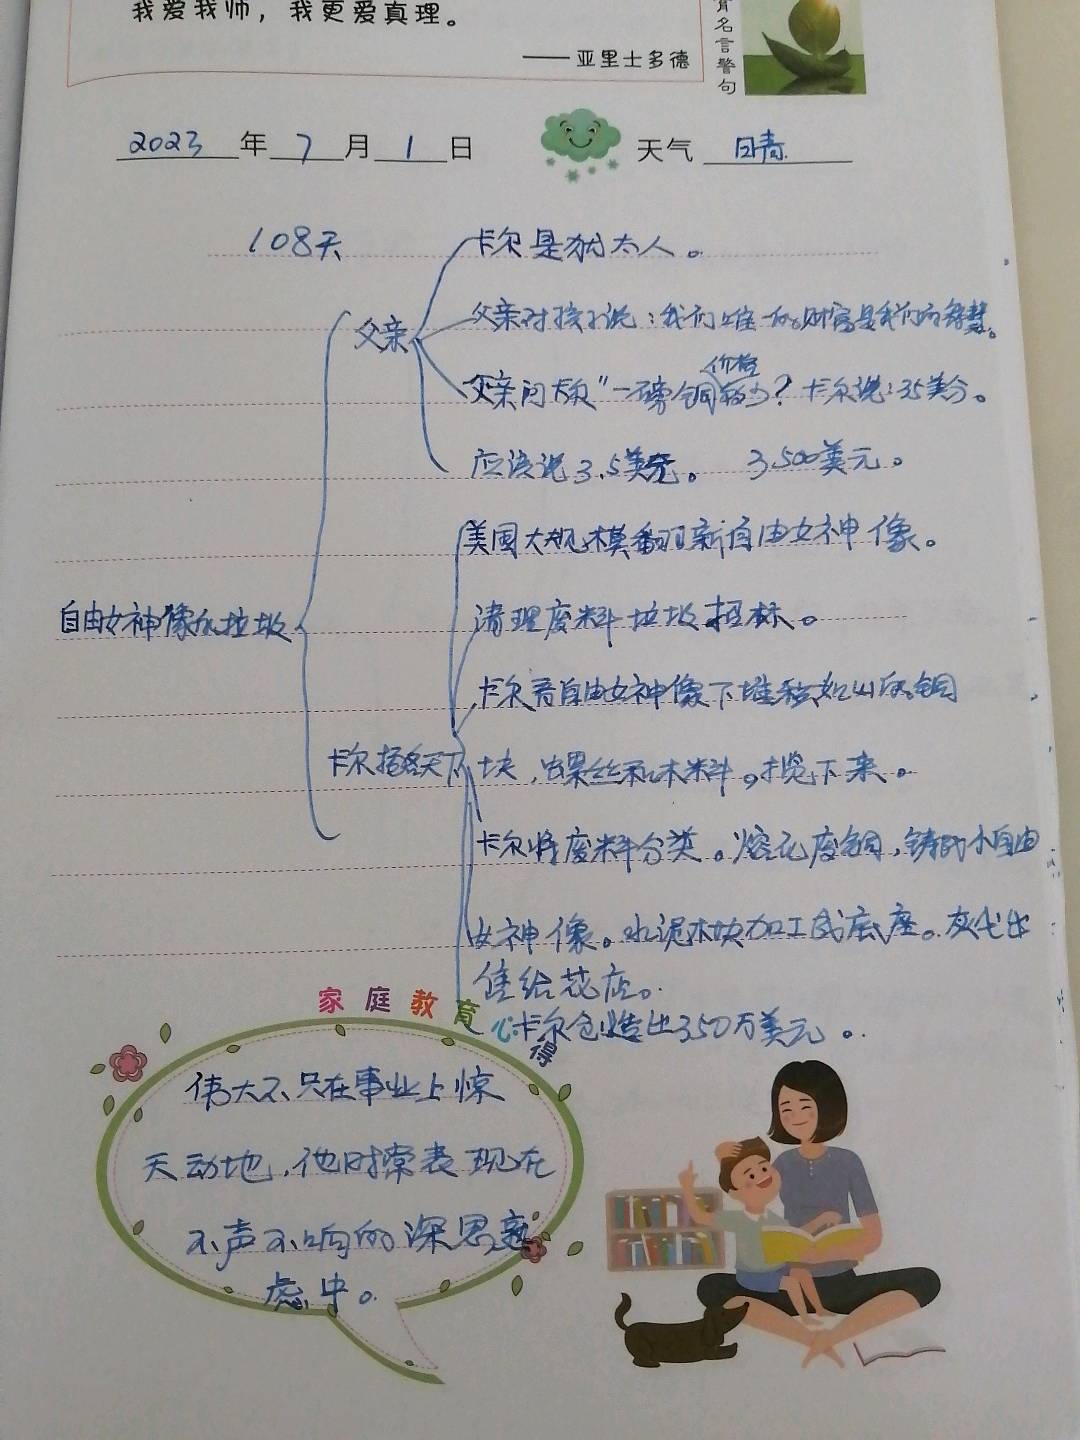 我爱我师，我更爱真理。
——亚里士多德
育名言警句
2023年7月1日 天气 晴
108天
卡尔是犹太人。
父亲对孩子说：我们唯一的财富是我们的智慧。
父亲
价格
父亲问卡尔"一磅铜多少？卡尔说：35美分。
应该说3.5美元。 3500美元。
美国大规模翻新自由女神像。
自由女神像的垃圾
清理废料垃圾招标。
卡尔看自由女神像下堆积如山的铜
卡尔 天下
块，螺丝和木料。揽下来。
卡尔将废料分类。熔化废铜，铸成小自由
女神像。水泥木块加工成底座。灰尘出
售给花店。
卡尔创造出350万美元。
家庭教育心得
伟大不只在事业上惊
天动地，他时常表现在
不声不响的深思熟
虑中。